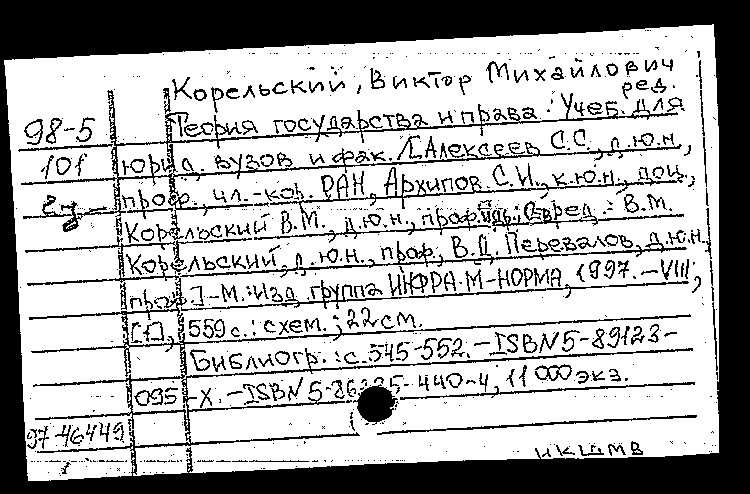 Корельский, Виктор Михайлович
ред.
98-5 Теория государства и права: Учеб. для
101 юрид. вузов и фак. /[Алексеев С.С., д.ю.н.,
проф., чл.-кор. РАН, Архипов С.И., к.ю.н., доц.,
Корельский В.М., д.ю.н., проф. и др.; ред.: В.М.
Корельский, д.ю.н., проф, В.Д. Перевалов, д.ю.н.,
проф]-М.: Изд. группа ИНФРА·М-НОРМА, 1997.-VIII,
[1], 559 с.: схем.; 22 см.
Библиогр.: с. 545-552.-ISBN 5-89123-
095-X.-ISBN 5-86225-440-4, 11 000 экз.
97-46449